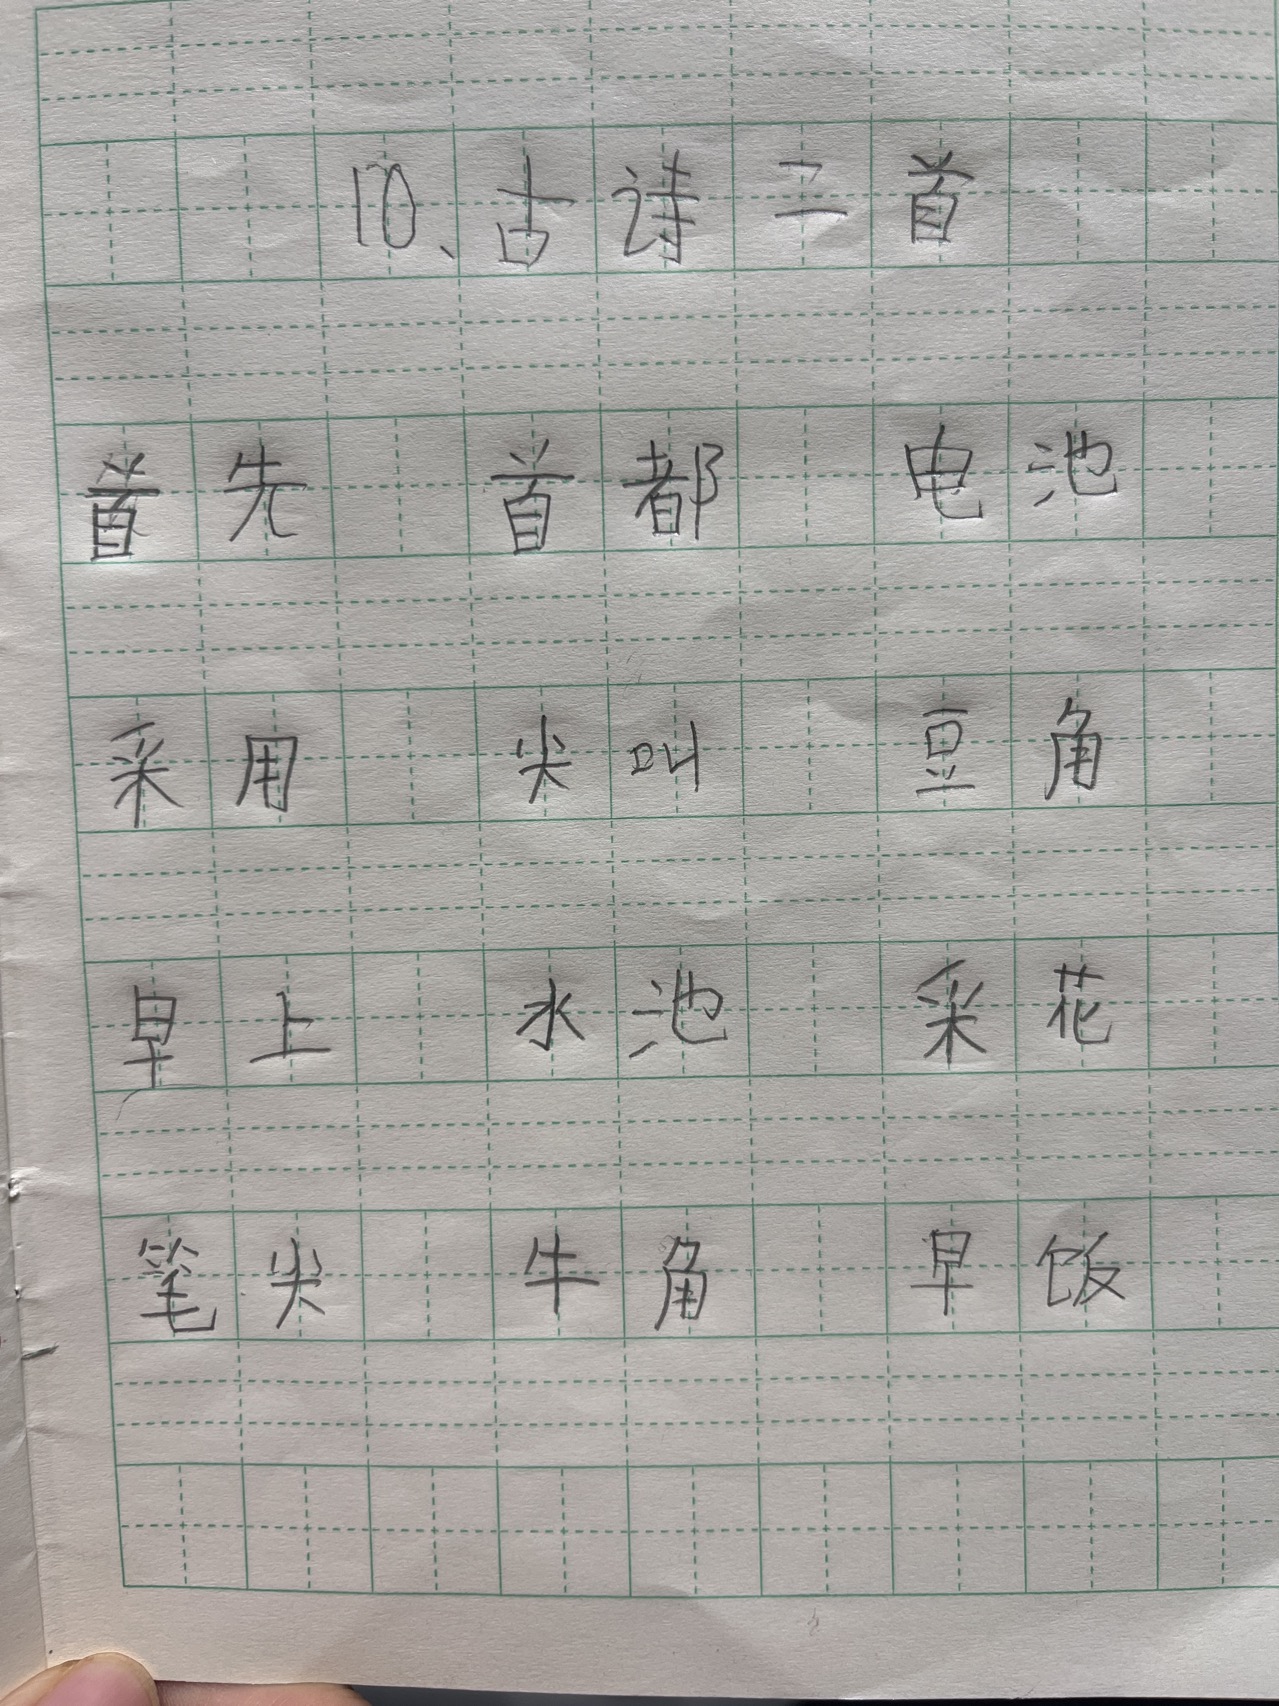 10、古诗二首
首先 首都 电池
采用 尖叫 豆角
早上 水池 采花
笔尖 牛角 早饭